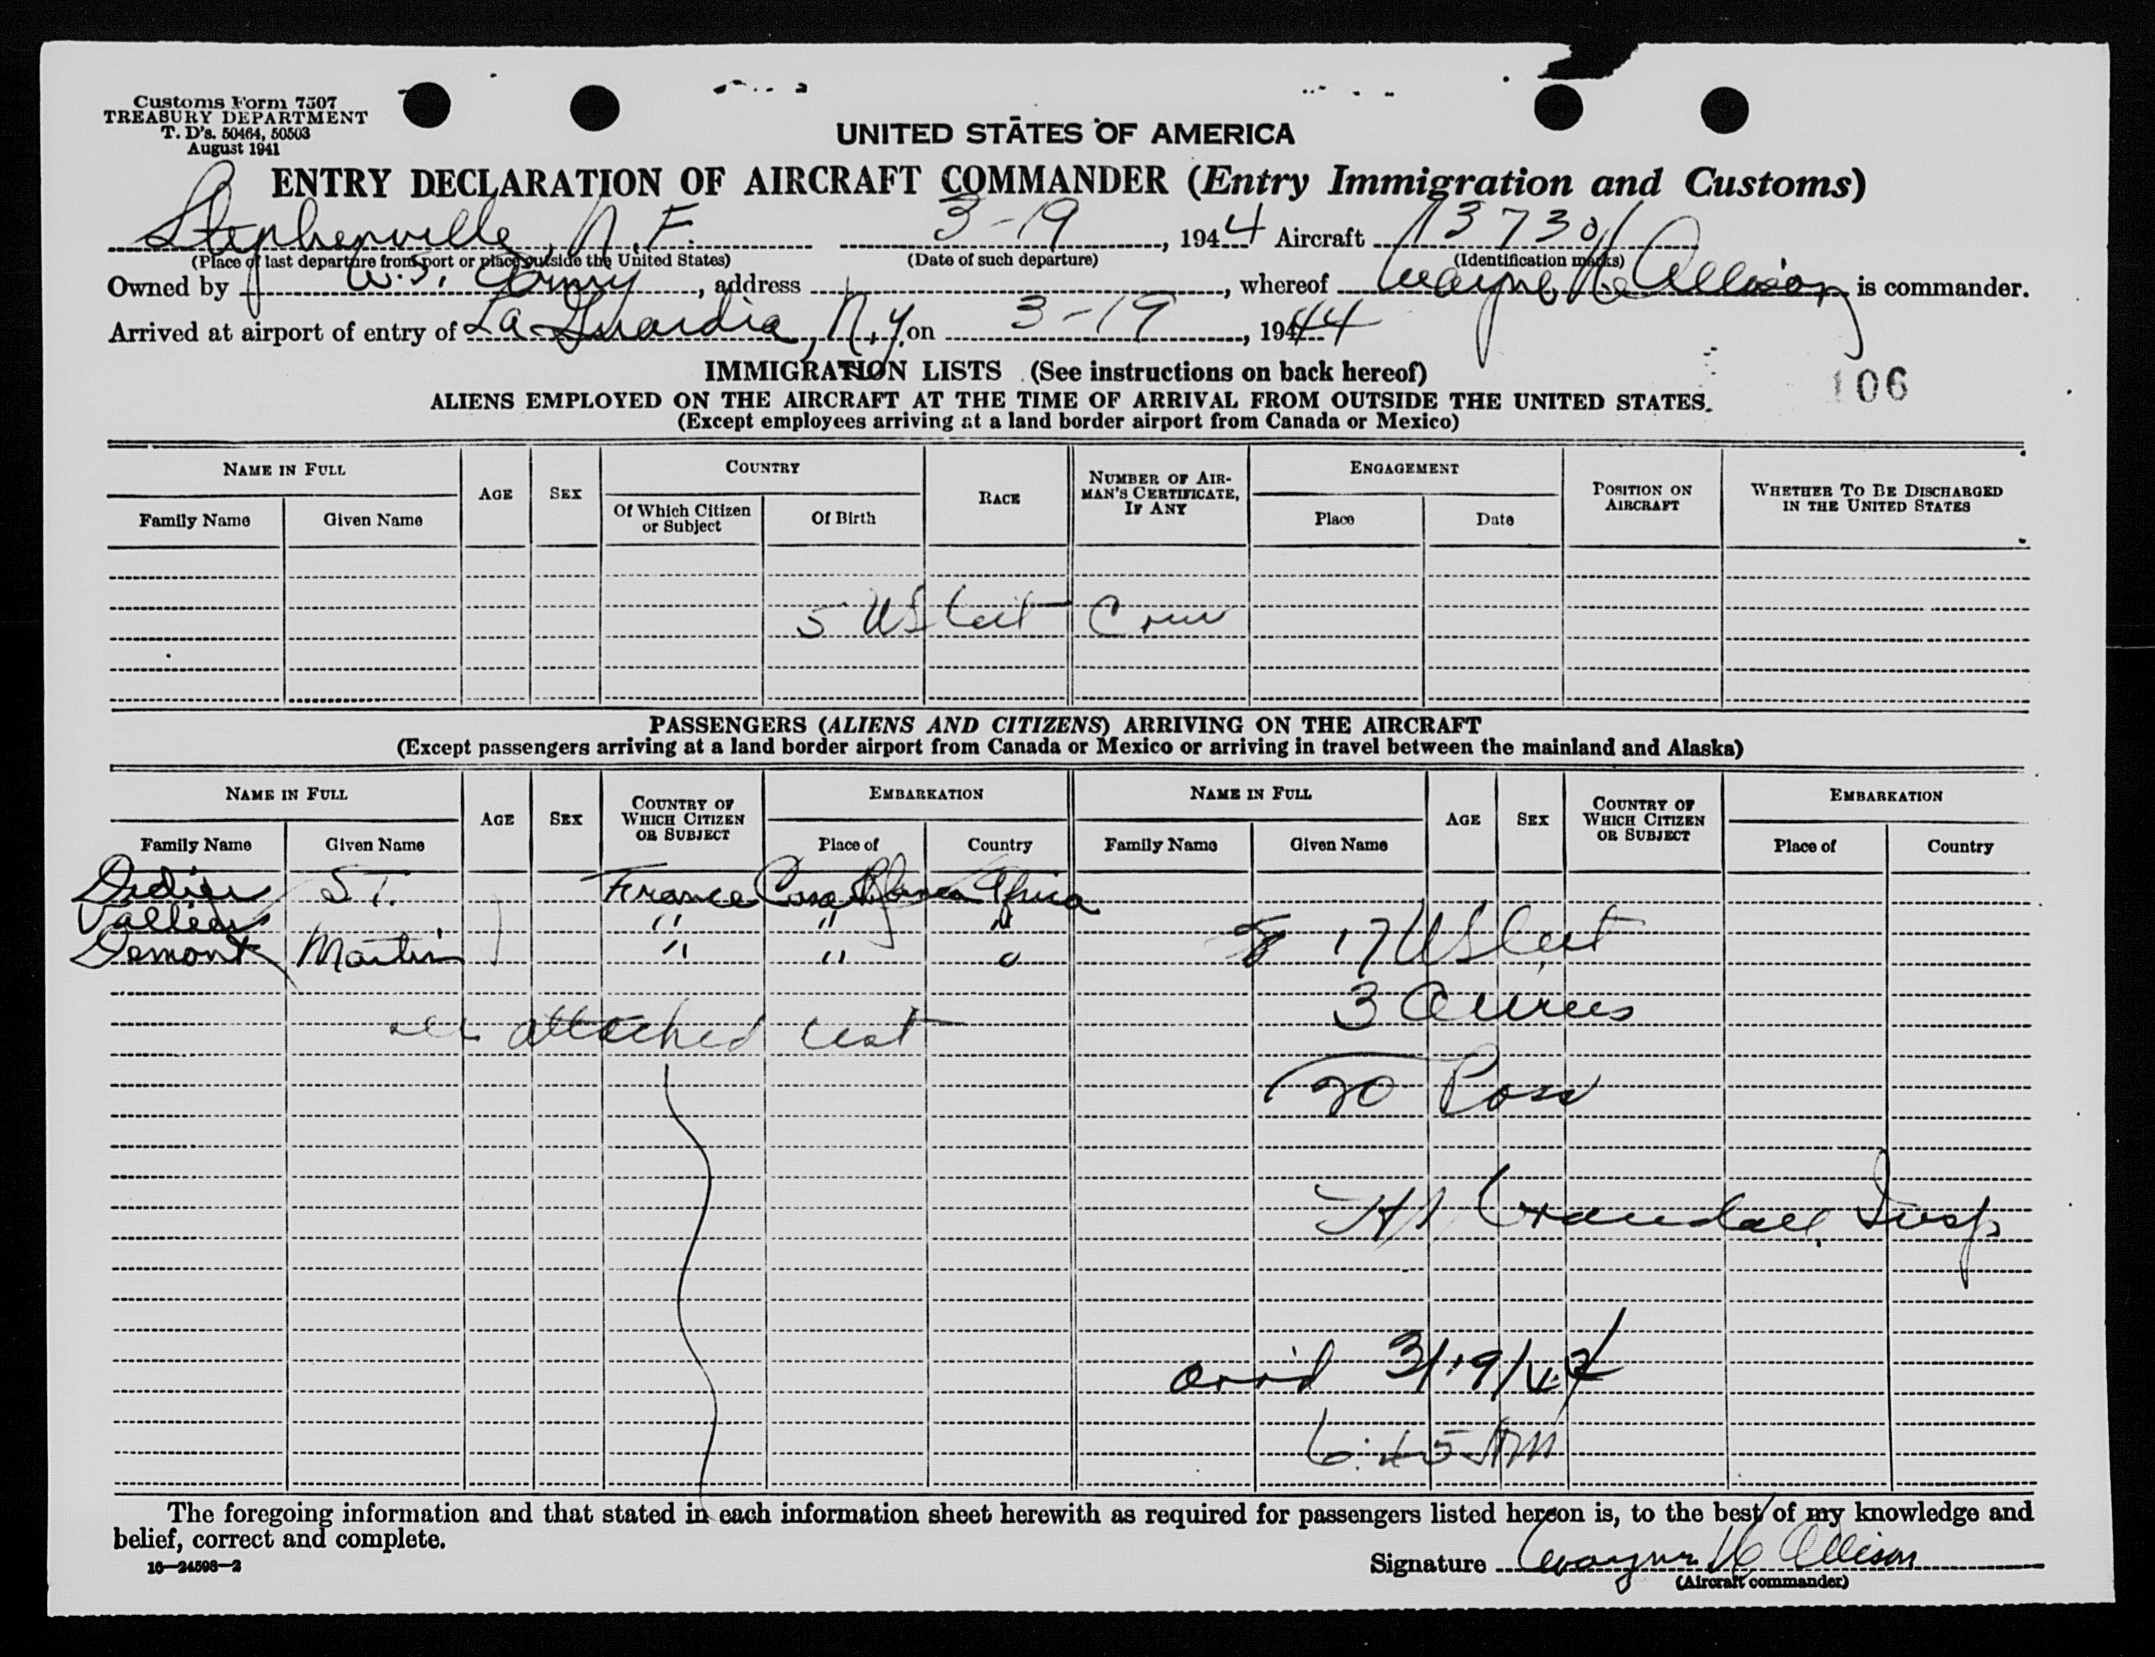 Customs Form 7507
TREASURY DEPARTMENT
T. D's. 50464, 50503
August 1941
UNITED STATES OF AMERICA
ENTRY DECLARATION OF AIRCRAFT COMMANDER (Entry Immigration and Customs)
Stephenville, N.F. 3-19, 1944 Aircraft 13730
(Place of last departure from port or place outside the United States) (Date of such departure) (Identification marks)
Owned by U.S. Army, address, whereof Wayne H. Allison is commander.
Arrived at airport of entry of La Guardia, N.Y. on 3-19, 1944
IMMIGRATION LISTS (See instructions on back hereof)
106
ALIENS EMPLOYED ON THE AIRCRAFT AT THE TIME OF ARRIVAL FROM OUTSIDE THE UNITED STATES.
(Except employees arriving at a land border airport from Canada or Mexico)
NAME IN FULL AGE SEX COUNTRY RACE NUMBER OF AIRMAN'S CERTIFICATE, IF ANY ENGAGEMENT POSITION ON AIRCRAFT WHETHER TO BE DISCHARGED IN THE UNITED STATES
Family Name Given Name Of Which Citizen or Subject Of Birth Place Date
5 US Cit Crew
PASSENGERS (ALIENS AND CITIZENS) ARRIVING ON THE AIRCRAFT
(Except passengers arriving at a land border airport from Canada or Mexico or arriving in travel between the mainland and Alaska)
NAME IN FULL AGE SEX COUNTRY OF WHICH CITIZEN OR SUBJECT EMBARKATION NAME IN FULL AGE SEX COUNTRY OF WHICH CITIZEN OR SUBJECT EMBARKATION
Family Name Given Name Place of Country Family Name Given Name Place of Country
Didier St. France Casa Blanca Africa
" " "
Demont Martin " " "
17 US Cit
3 Aliens
see attached list
20 Pass
Crandall, Insp
arr'd 3/19/44
6:45 AM
The foregoing information and that stated in each information sheet herewith as required for passengers listed hereon is, to the best of my knowledge and
belief, correct and complete.
16—24598—2
Signature Wayne H Allison
(Aircraft commander)